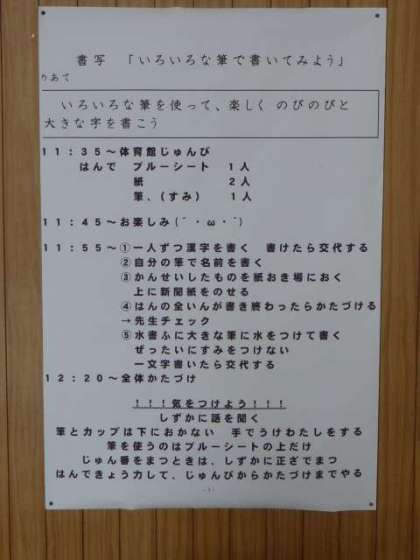 書写　「いろいろな筆で書いてみよう」
りあて
いろいろな筆を使って、楽しく のびのびと
大きな字を書こう
11:35～体育館じゅんび
はんで　ブルーシート　1人
紙　2人
筆、(すみ)　1人
11:45～お楽しみ(´・ω・`)
11:55～①一人ずつ漢字を書く　書けたら交代する
②自分の筆で名前を書く
③かんせいしたものを紙おき場におく
上に新聞紙をのせる
④はんの全いんが書き終わったらかたづける
→先生チェック
⑤水書ふに大きな筆に水をつけて書く
ぜったいにすみをつけない
一文字書いたら交代する
12:20～全体かたづけ
!!!気をつけよう!!!
しずかに話を聞く
筆とカップは下におかない　手でうけわたしをする
筆を使うのはブルーシートの上だけ
じゅん番をまつときは、しずかに正ざでまつ
はんできょう力して、じゅんびからかたづけまでやる